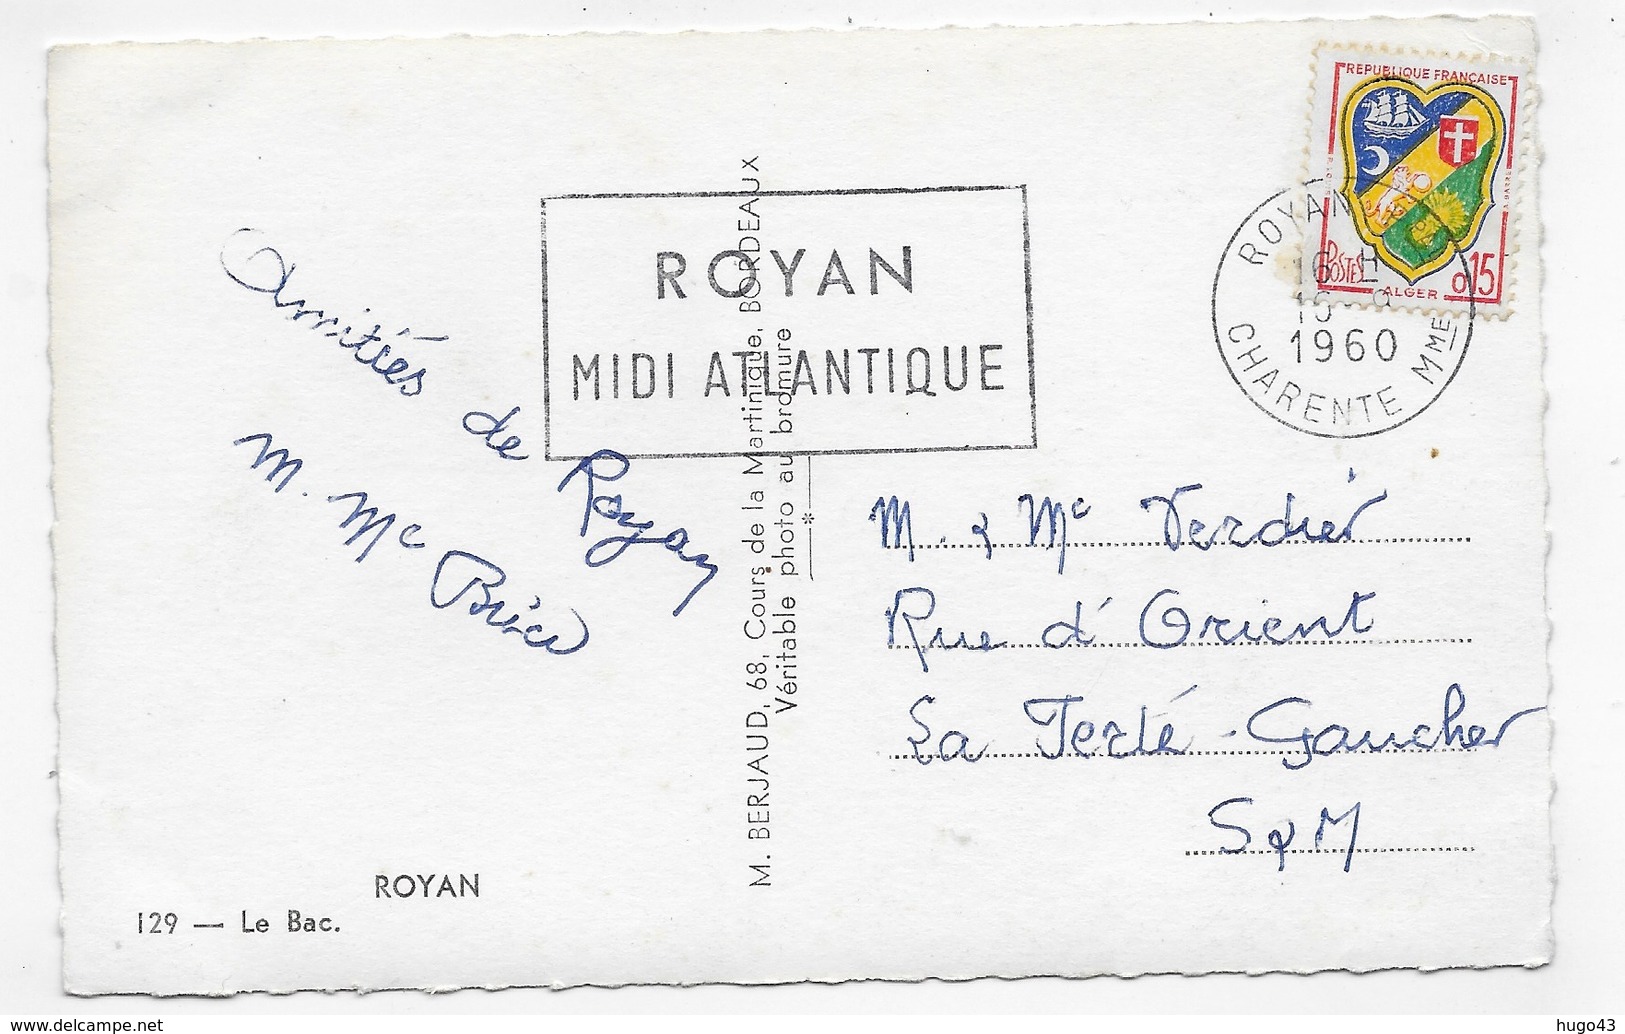 REPUBLIQUE FRANÇAISE
POSTES
0,15
ALGER
ROYAN
16 H
1960
CHARENTE MME
ROYAN
MIDI ATLANTIQUE
Amitiés de Royan
M. Me
M. BERJAUD, 68, Cours de la Martinique, BORDEAUX
Véritable photo au bromure
M. & Me Verdier
Rue d'Orient
La Ferté-Gaucher
S & M
ROYAN
129 — Le Bac.
hugo43